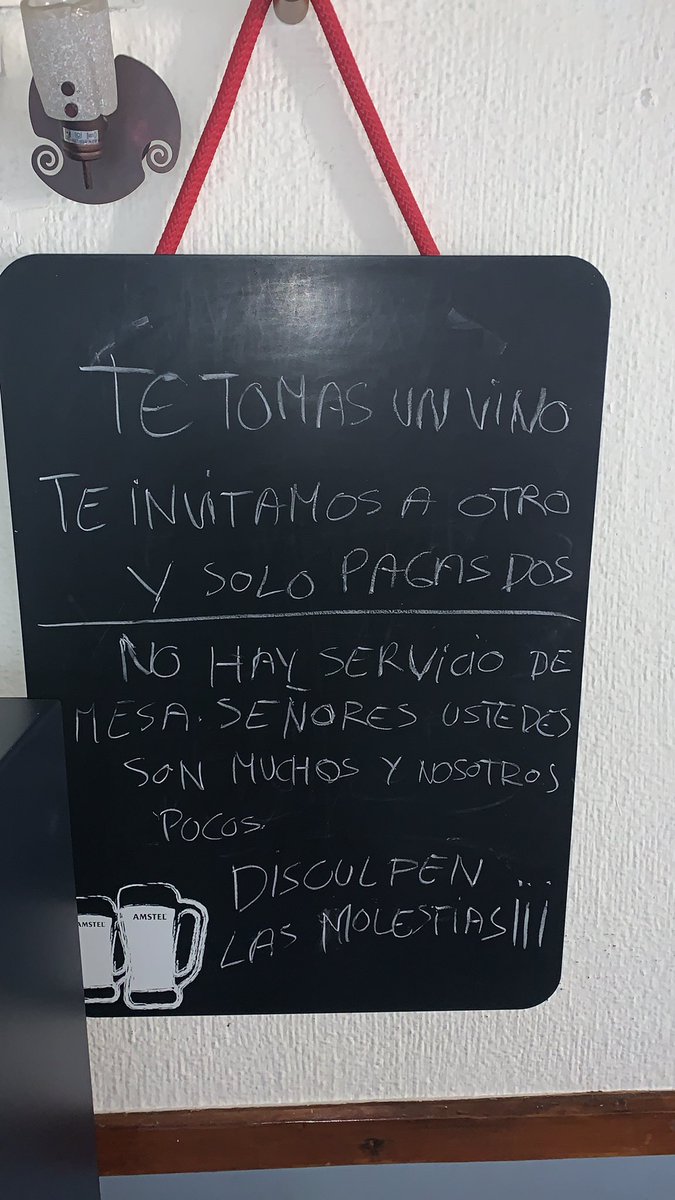 TE TOMAS UN VINO
TE INVITAMOS A OTRO
Y SOLO PAGAS DOS
NO HAY SERVICIO DE
MESA. SEÑORES USTEDES
SON MUCHOS Y NOSOTROS
POCOS.
DISCULPEN
LAS MOLESTIAS¡¡¡
AMSTEL
AMSTEL